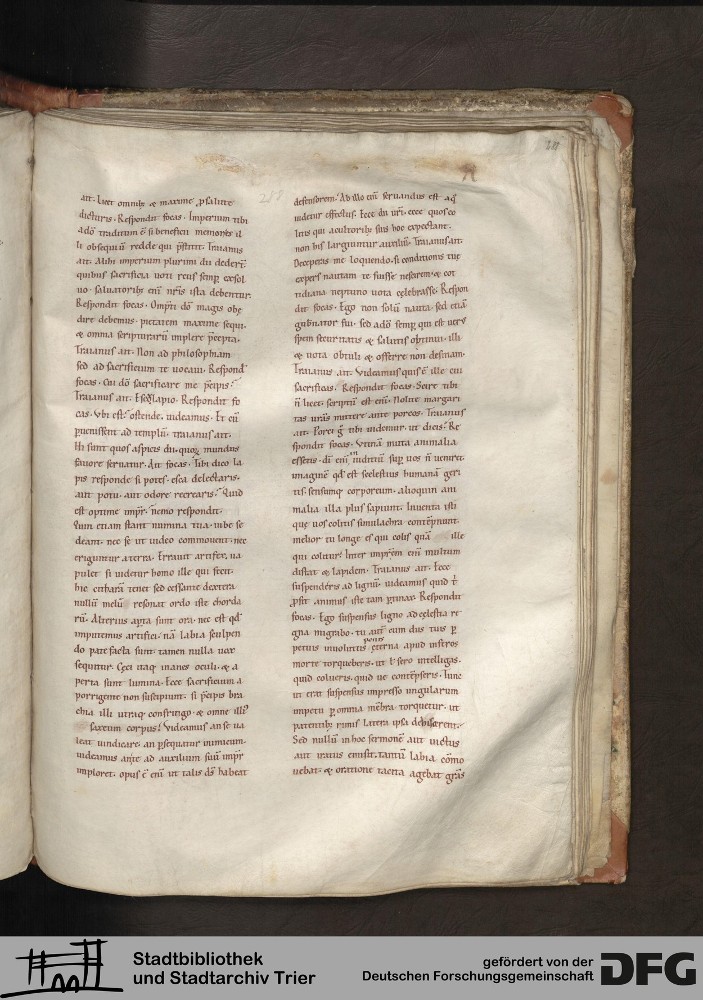 ait. Licet omnibꝫ & maxime ꝓ salute
dicturis. Respondit focas. Imperium tibi
a dō traditum ē. si beneficii memores il
li obsequiū redde qui p̄stitit. Traianus
ait. Alibi imperium plurimi dii dedert̄.
quibus sacrificia uoti reus semꝑ exsol
uo. saluatoribꝫ enī nr̄is ista debentur.
Respondit focas. Omp̄ti dō magis obę
dire debemus. pietatem maxime sequi.
& omnia scripturarū implere p̄cepta.
Traianus ait. Non ad philosophiam
sed ad sacrificium te uocaui. Respond'
focas. Cui dō sacrificare me p̄cipis?
Traianus ait. Esclapio. Respondit fo
cas. Vbi est? ostende. uideamus. Et cū
puenissent ad templū. traianus ait.
Hi sunt quos aspicis dii. quoꝝ mundus
fauore seruatur. Ait focas. Tibi dico la
pis responde si potes. esca delectaris.
an potu. aut odore recrearis? Quid
est optime impr̄. nemo respondit.
Cum etiam stant numina tua. iube se
deant. nec se ut uideo commouent. nec
eriguntur a terra. Errauit artifex. ua
pulet si uidetur homo ille qui fecit.
hic citharā tenet sed cessante dextera
nullū melū resonat ordo iste chorda
rū. Alterius apta sunt ora. nec est qd'
imputemus artifici. nā labia sculpen
do patefacta sunt. tamen nulla uox
sequitur. Cęci itaq inanes oculi. & a
perta sunt lumina. Ecce sacrificium a
porrigente non suscipiunt. si p̄cipis bra
chia illi utraq confringo. & omne illi'
saxeum corpus. Videamus an se ua
leat uindicare. an ꝑsequatur inimicum.
uideamus ante ad auxilium suū impr̄
imploret. opus ē enī ut talis ds̄ habeat
defensorem. Ab illo enī seruandus est a q̄
uidetur effectus. Ecce dii ur̄i. ecce quos co
litis qui a cultoribꝫ suis hoc expectant.
non his largiuntur auxiliū. Traianus ait.
Deceperis me loquendo. si conditionis tuę
expers nautam te fuisse nescirem. & cot
tidiana neptuno uota cęlebrasse. Respon
dit focas. Ego non solū nauta. sed etiā
gubnator fui. sed a dō semꝑ qui est uera
spem securitatis & salutis obtinui. illi
& uota obtuli & offerre non desinam.
Traianus ait. Videamus quis ē ille cui
sacrificas. Respondit focas. Scire tibi
n̄ licet. scriptū est enī. Nolite margari
tas ur̄as mittere ante porcos. Traianus
ait. Porci g̊ tibi uidemur. ut dicis? Re
spondit focas. Vtinā muta animalia
essetis. di enī iudiciū suꝑ uos n̄ ueniret.
imaginē qd' est scelestius humanā geri
tis sensumq corporeum. alioquin ani
malia illa plus sapiunt. Inuenta isti
que uos colitis simulachra contēpnunt.
melior tu longe es qui colis quā ille
qui colitur. Inter impr̄em enī multum
distat & lapidem. Traianus ait. Ecce
suspenderis ad lignū. uideamus quid t̄
ꝓsit animus iste tam ꝑtinax. Respondit
focas. Ego suspensus ligno ad cęlestia re
gna migrabo. tu aut̄ cum diis tuis ꝑ
petuis inuolutis penis ęterna apud inferos
morte torqueberis. ut ł sero intelligas.
quid colueris. quid ue contēpseris. Tunc
ut erat suspensus impresso ungularum
impetu ꝑ omnia mēbra torquetur. ut
patentibꝫ rimis latera ipsa dehiscerent.
Sed nullū in hoc sermonē aut uictus
aut iratus emisit. tantū labia cōmo
uebat. & oratione tacita agebat grās
Stadtbibliothek
und Stadtarchiv Trier
gefördert von der
Deutschen Forschungsgemeinschaft
DFG